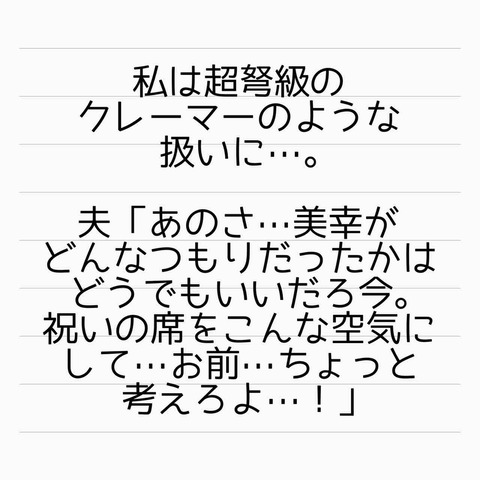 私は超弩級の
クレーマーのような
扱いに…。
夫「あのさ…美幸が
どんなつもりだったかは
どうでもいいだろ今。
祝いの席をこんな空気に
して…お前…ちょっと
考えろよ…！」